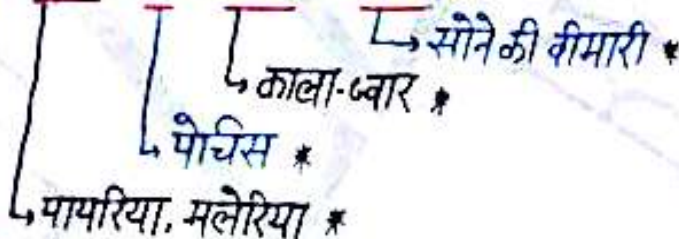 सोने की बीमारी *
काला-ज्वार *
पेचिस *
पायरिया, मलेरिया *